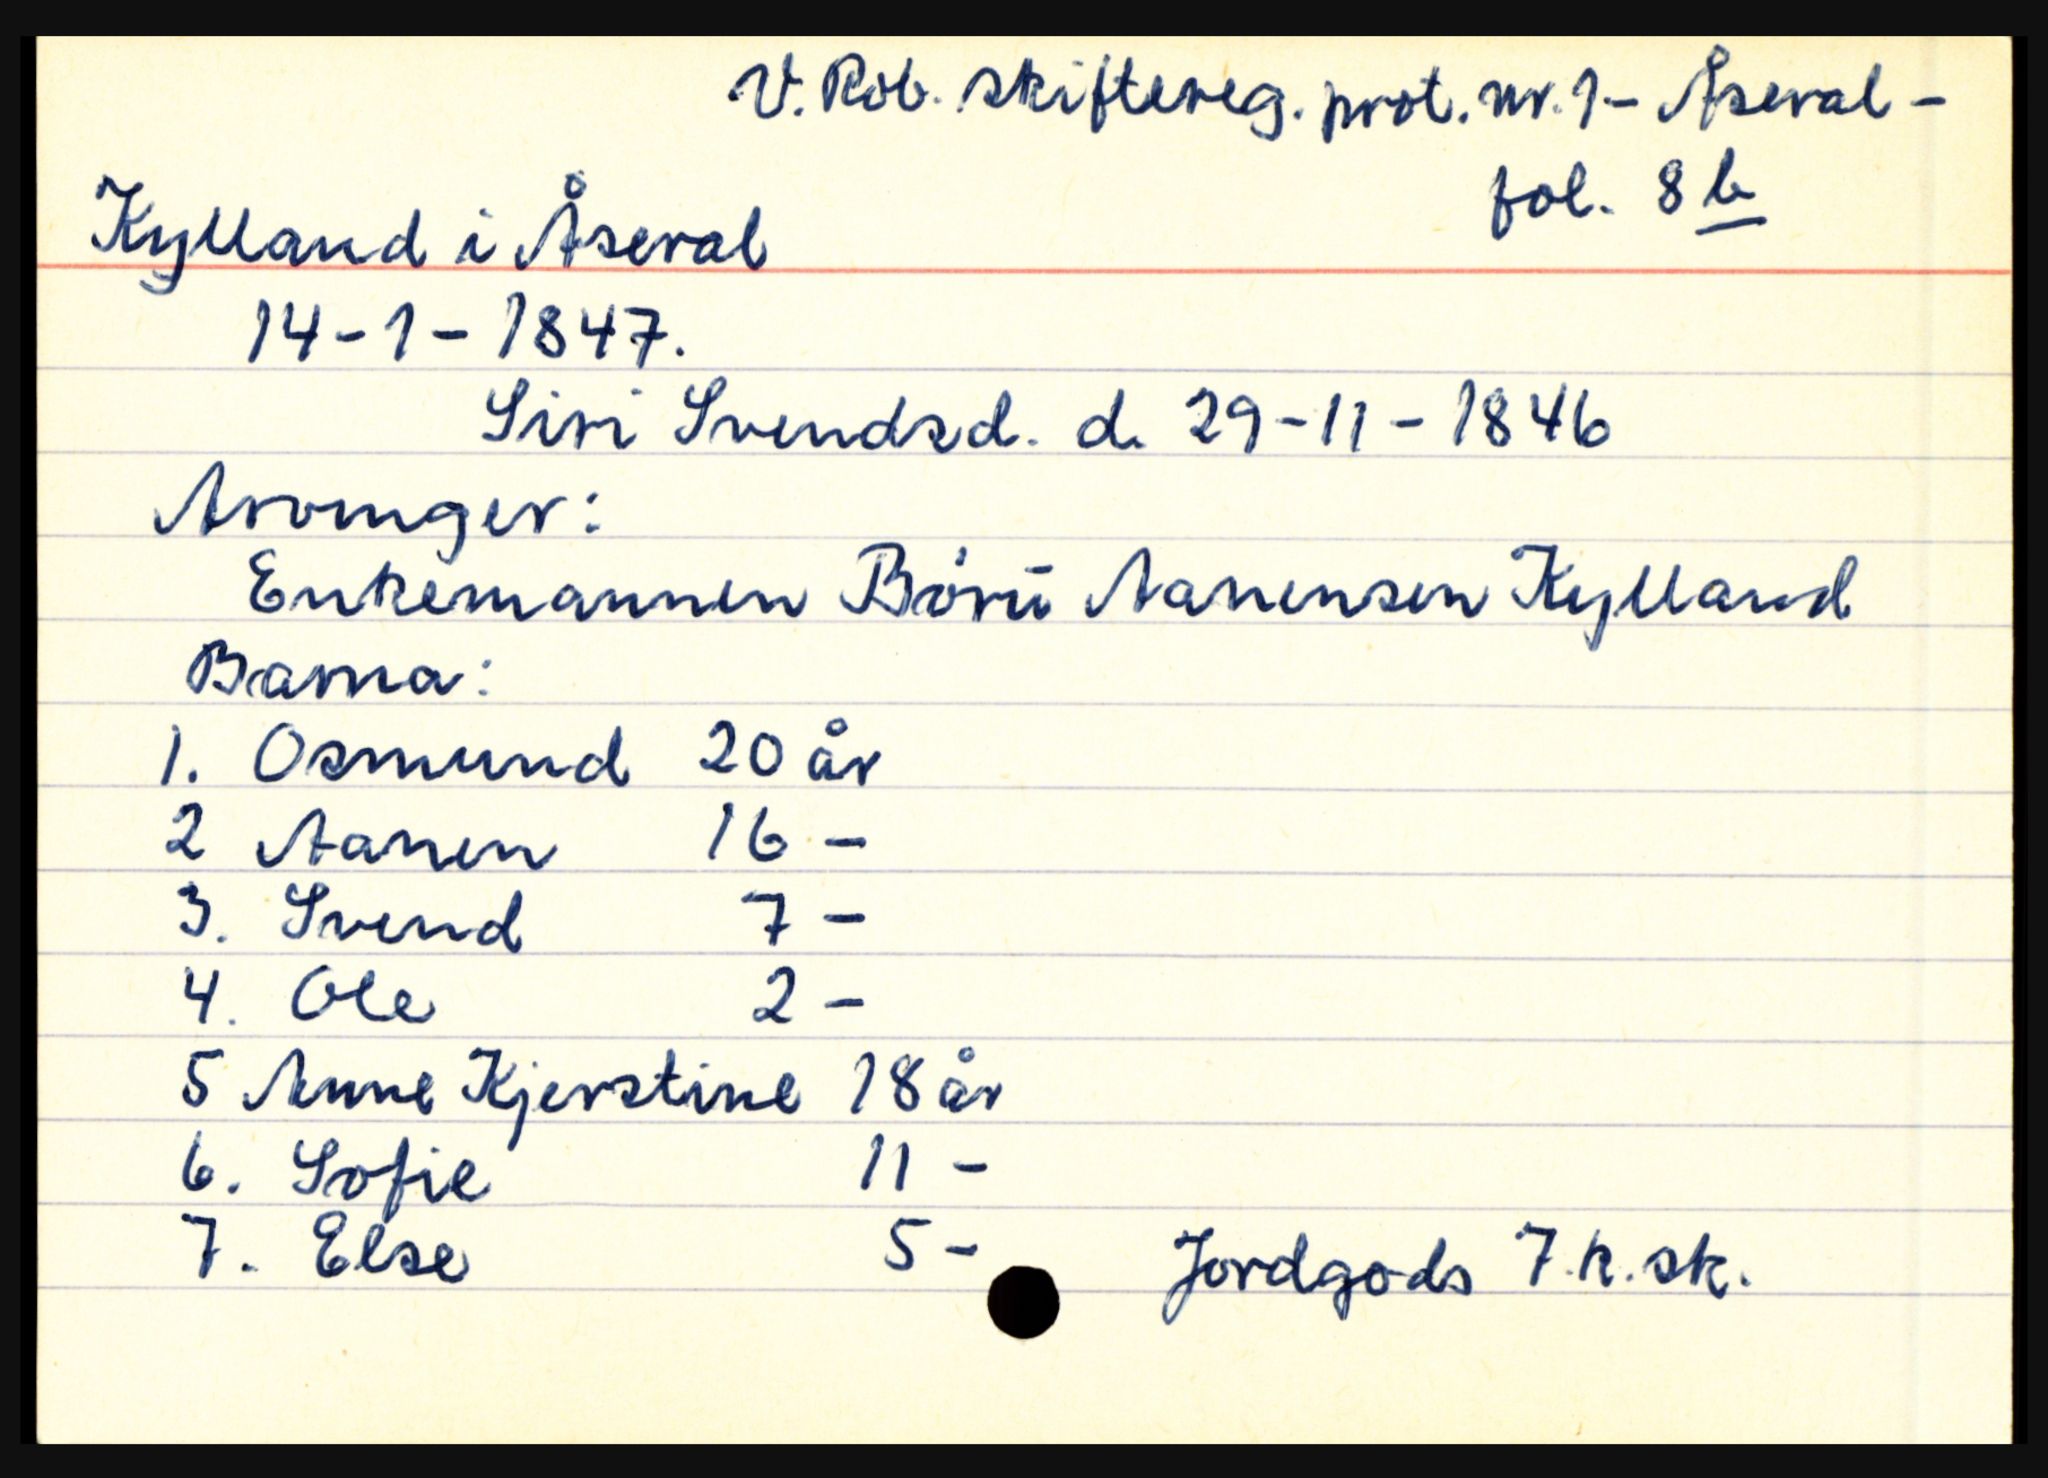 V. Rob. skiftereg. prot. nr. 1 - Åseral -
fol. 8 b
Kylland i Åseral
14-1-1847.
Siri Svendsd. d. 29-11-1846
Arvinger:
Enkemannen Børu Aanensen Kylland
Barna:
1. Osmund 20 år
2 Aanen 16 -
3. Svend 7 -
4. Ole 2 -
5 Anne Kjerstine 18 år
6. Sofie 11 -
7. Else 5 - Jordgods 7.k.sk.